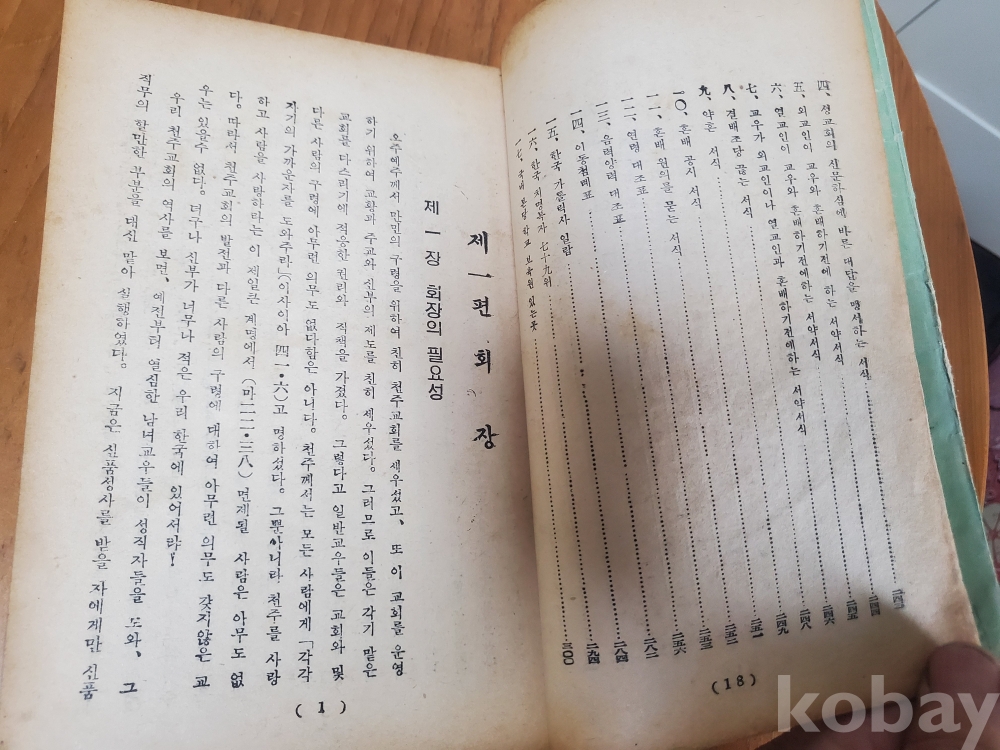 四、성교회의 신문하심에 바른 대답을 맹서하는 서식 二四四
五、외교인이 교우와 혼배하기전에 하는 서약서식 二四五
六、열교인이 교우와 혼배하기전에 하는 서약서식 二四六
七、교우가 외교인이나 열교인과 혼배하기전에하는 서약서식 二四八
八、결배조당 끊는 서식 二四九
九、약혼 서식 二五一
一〇、혼배 공시 서식 二五二
一一、혼배 원의를 묻는 서식 二五三
一二、연령 대조표 二五六
一三、음력양력 대조표 二八二
一四、이동첨례표 二八四
一五、한국 가톨릭사 일람 二九四
一六、한국 치명복자 七十九위 三〇〇
一七、
(18)
제一편 회장
제一장 회장의 필요성
오주예수께서 만민의 구령을 위하여 친히 천주교회를 세우셨고、또 이 교회를 운영
하기 위하여 교황과 주교와 신부의 제도를 친히 세우셨다。그러므로 이들은 각기 맡은
교회를 다스리기에 적응한 권리와 직책을 가졌다。그렇다고 일반교우들은 교회와 및
다른 사람의 구령에 아무런 의무도 없다함은 아니다。천주께서는 모든 사람에게「각각
자기의 가까운자를 도와주라」(이사이아 四一・六)고 명하셨다。그뿐아니라 천주를 사랑
하고 사람을 사랑하라는 이 제일큰 계명에서 (마二二・三八) 면제될 사람은 아무도 없
다。따라서 천주교회의 발전과 다른 사람의 구령에 대하여 아무런 의무도 갖지않은 교
우는 있을수 없다。더구나 신부가 너무나 적은 우리 한국에 있어서랴!
우리 천주교회의 역사를 보면、예전부터 열심한 남녀교우들이 성직자들을 도와、그
직무의 할만한 부분을 대신 맡아 실행하였다。지금은 신품성사를 받을 자에게만 신품
(1)
kobay